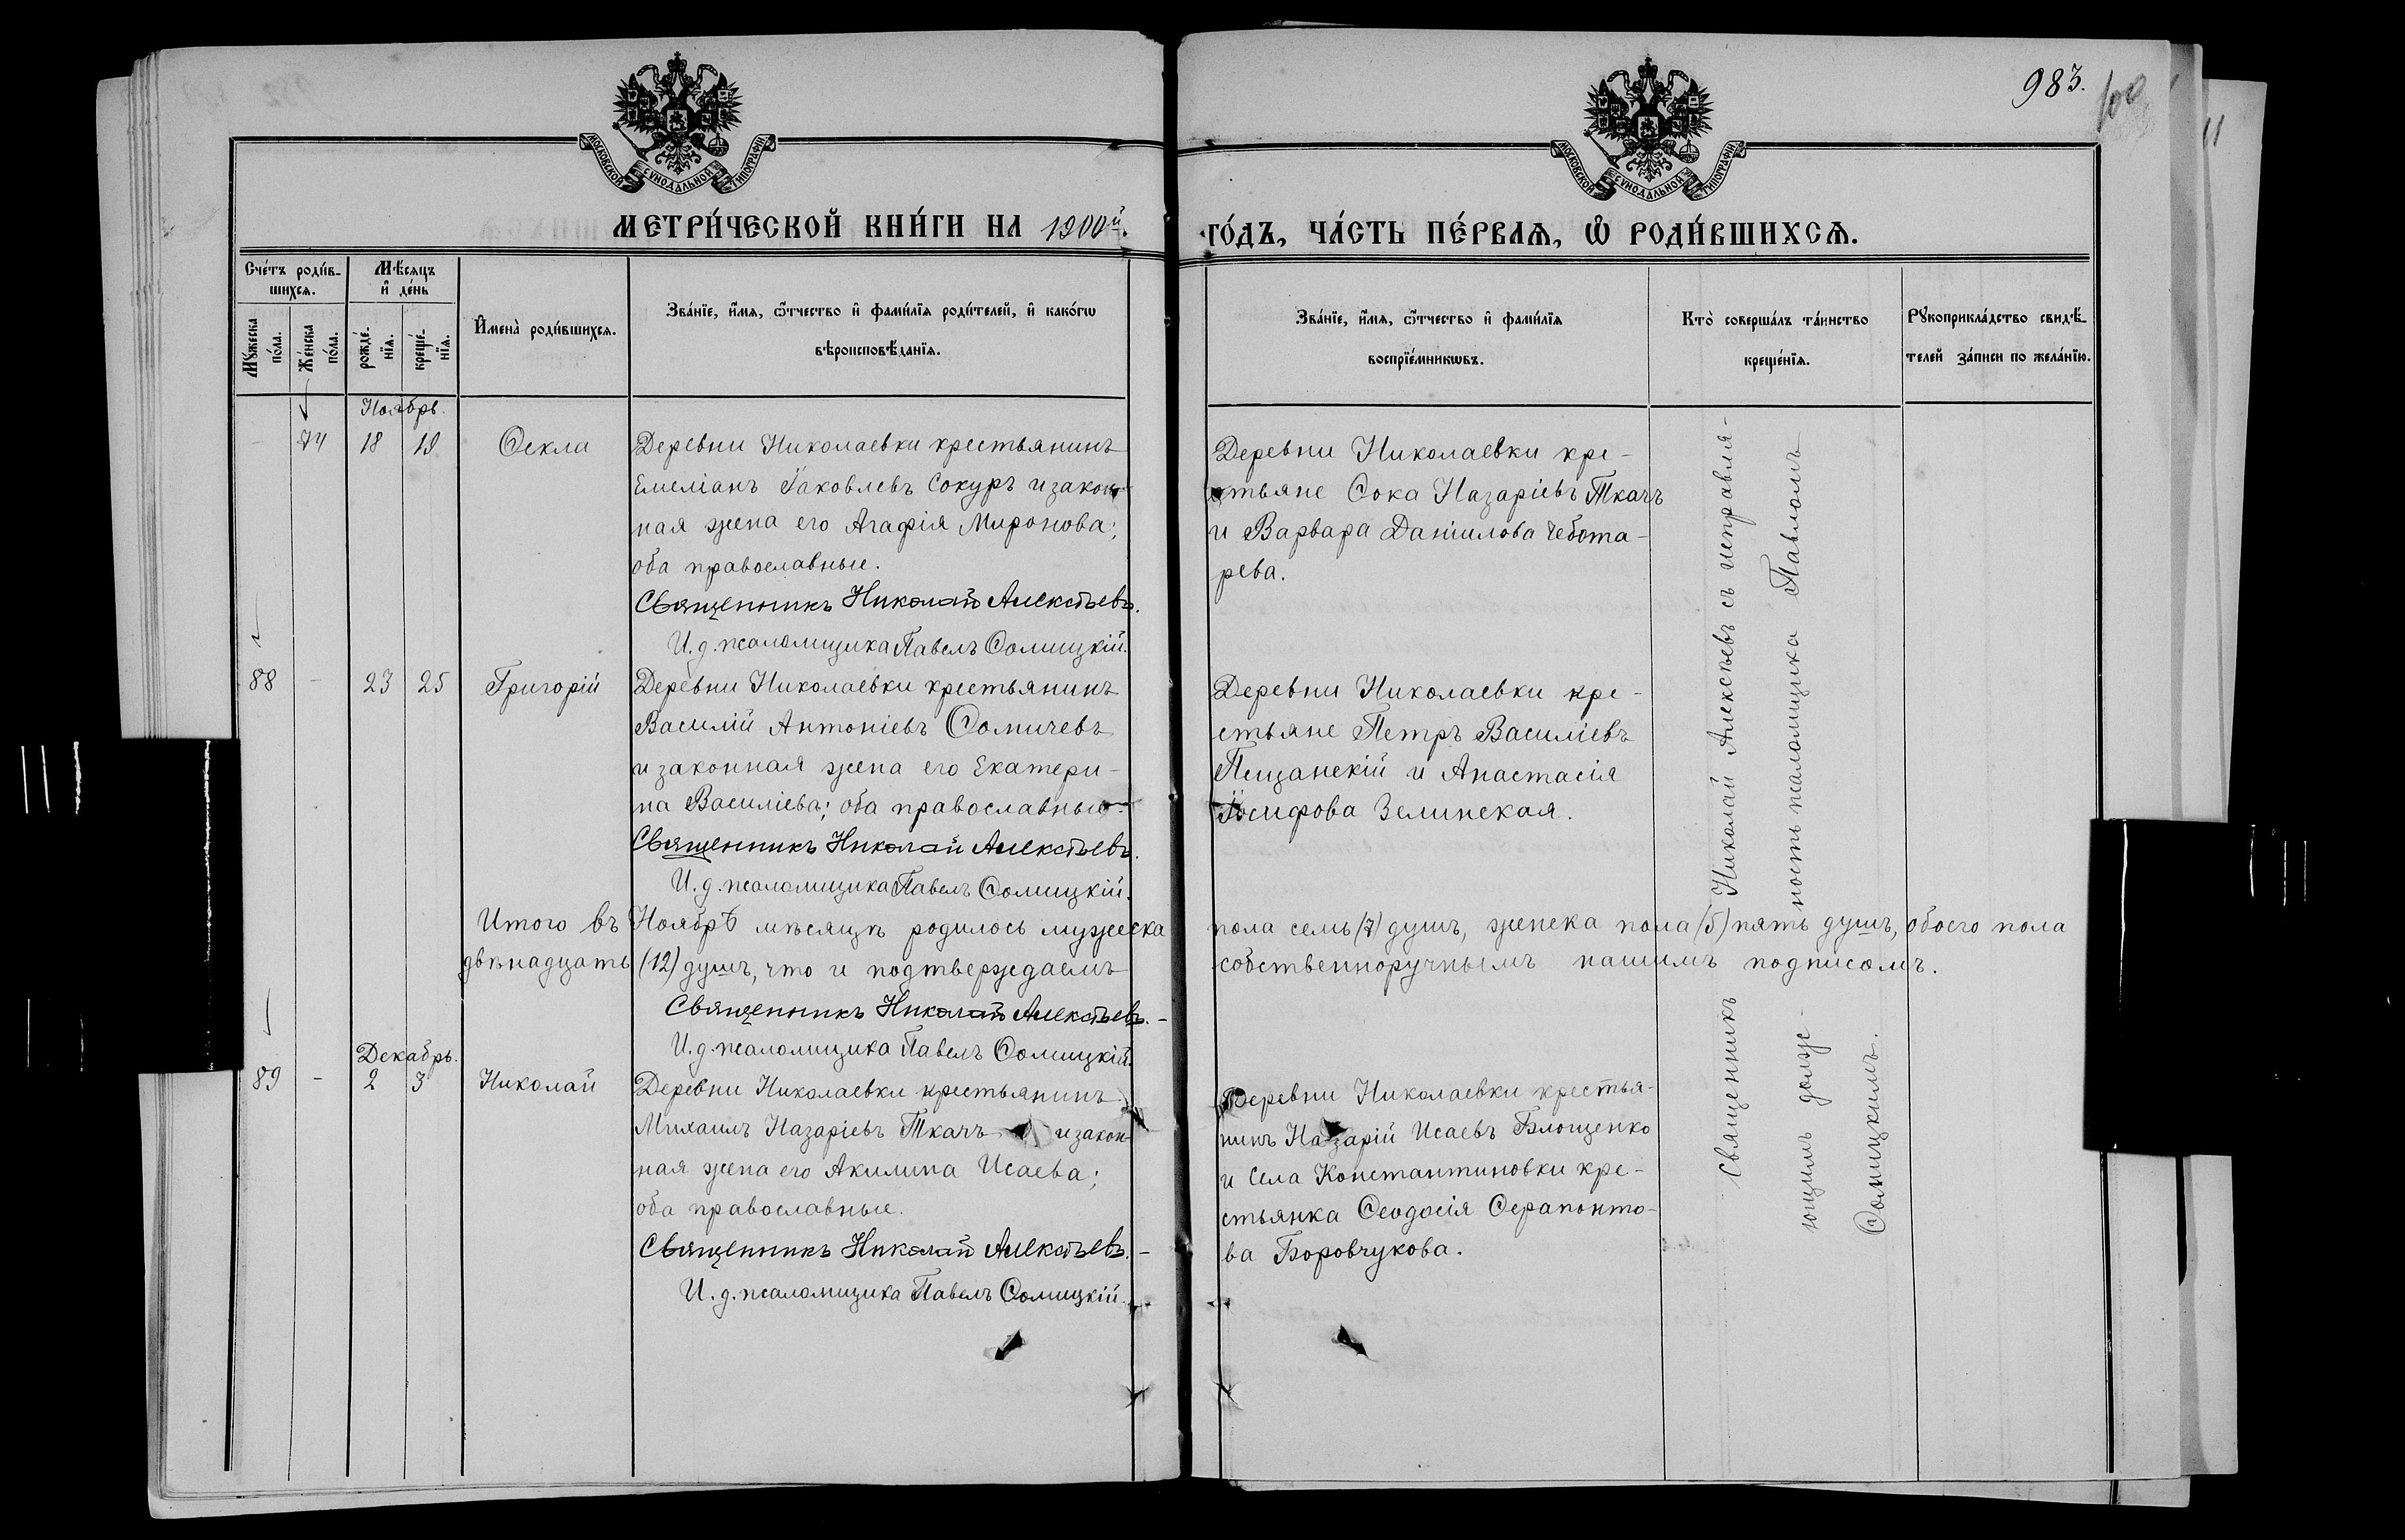 983.
100
11
МОСКОВСКОЙ СѴНОДАЛЬНОЙ ТИПОГРАФІИ
МОСКОВСКОЙ СѴНОДАЛЬНОЙ ТИПОГРАФІИ
МЕТРИ́ЧЕСКОЙ КНИ́ГИ НА 1900й.
ГО́ДЪ, ЧА́СТЬ ПЕ́РВАѦ, Ѽ РОДИ́ВШИХСѦ.
Сче́тъ роди́в-
шихсѧ.
Мѣ́сяцъ
и҆ де́нь
Мꙋжеска
по́ла.
Же́нска
по́ла.
рожде́-
нїѧ.
креще́-
нїѧ.
И҆мена̀ роди́вшихсѧ.
Зва́нїе, и҆́мѧ, ѻ҆́тчество и҆ фами́лїѧ роди́телей, и҆ како́гѡ
вѣроисповѣ́данїѧ.
Зва́нїе, и҆́мѧ, ѻ҆́тчество и҆ фами́лїѧ
воспрїе́мникѡвъ.
Кто̀ соверша́лъ та́инство
креще́нїѧ.
Рꙋкоприкла́дство свидѣ́-
телей за́писи по жела́нїю.
Ноябрь.
- 74 18 19 Ѳекла
Деревни Николаевки крестьянинъ
Емеліанъ Іаковлевъ Сокуръ и закон-
ная жена его Агафія Миронова;
оба православные.
Священникъ Николай Алексѣевъ.
И. д. псаломщика Павелъ Солицкій.
Деревни Николаевки кре-
стьяне Ѳока Назаріевъ Ткачъ
и Варвара Даніилова Чебота-
рева.
88 - 23 25 Григорій
Деревни Николаевки крестьянинъ
Василій Антоніевъ Сомичевъ
и законная жена его Екатери-
на Василіева; оба православные.
Священникъ Николай Алексѣевъ.
И. д. псаломщика Павелъ Солицкій.
Деревни Николаевки кре-
стьяне Петръ Василіевъ
Пищанскій и Анастасія
Іосифова Зелинская.
Итого въ Ноябрѣ мѣсяцѣ родилось мужеска пола семь (7) душъ, женска пола (5) пять душъ, обоего пола
двѣнадцать (12) душъ, что и подтверждаемъ собственноручнымъ нашимъ подписомъ.
Священникъ Николай Алексѣевъ. -
И. д. псаломщика Павелъ Солицкій.
Декабрь.
89 - 2 3 Николай
Деревни Николаевки крестьянинъ
Михаилъ Назаріевъ Ткачъ и закон-
ная жена его Акилина Исаева;
оба православные.
Священникъ Николай Алексѣевъ. -
И. д. псаломщика Павелъ Солицкій.
Деревни Николаевки крестья-
нинъ Назарій Исаевъ Блощенко
и Села Константиновки кре-
стьянка Ѳеодосія Серапонто-
ва Боровчукова.
Священникъ Николай Алексѣевъ съ исправля-
ющимъ долж- ность псаломщика Павломъ
Солицкимъ.